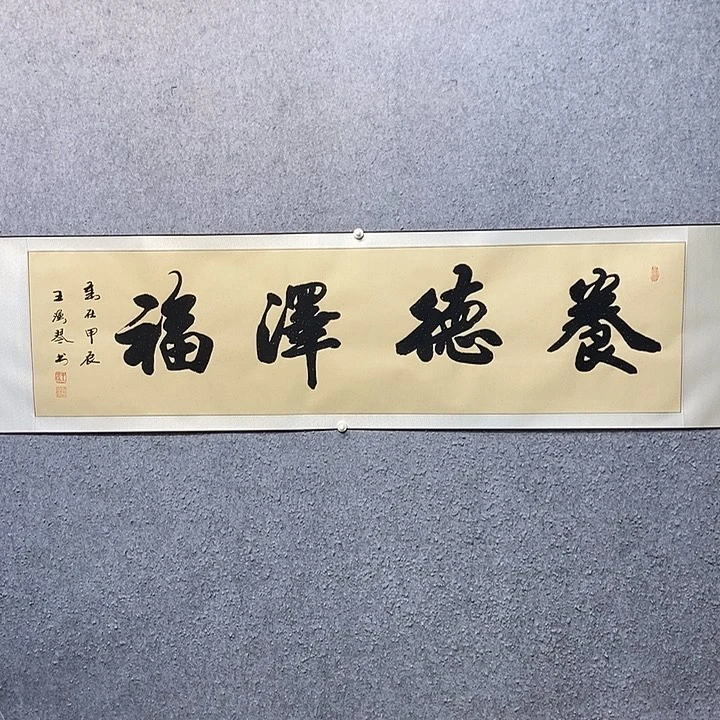 養德澤福
歲在甲辰
王
琴书